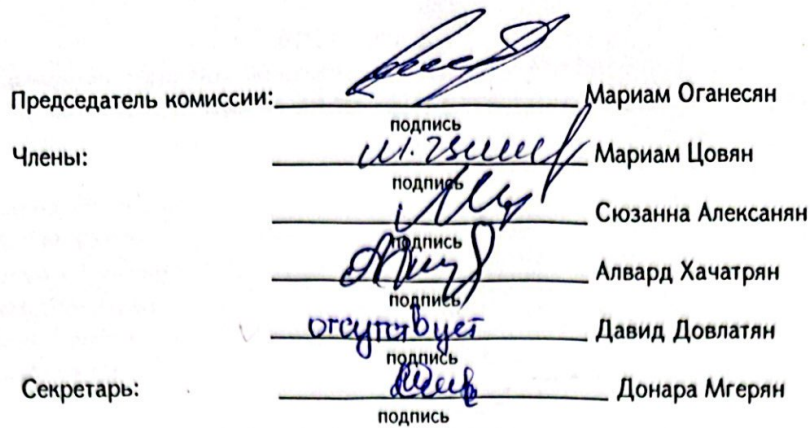 Председатель комиссии: Мариам Оганесян
подпись
Члены: Мариам Цовян
подпись
Сюзанна Алексанян
подпись
Алвард Хачатрян
подпись
отсутствует Давид Довлатян
подпись
Секретарь: Донара Мгерян
подпись